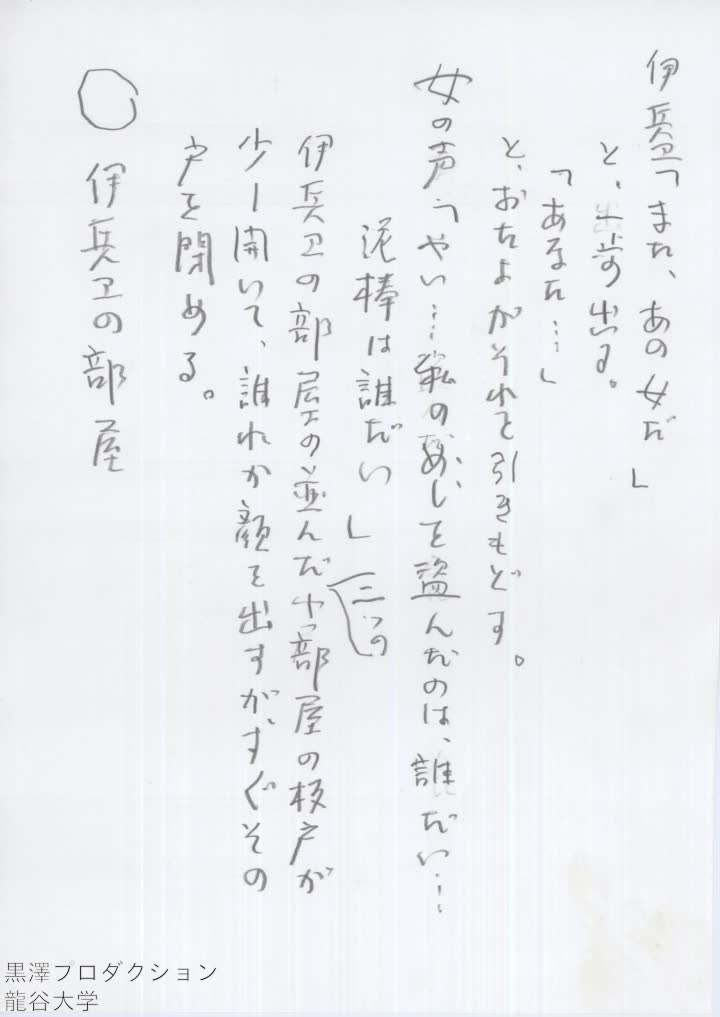 伊兵卫「また、あの女だ」
と、一歩出る。
「あなた…」
と、おたよがそれを引きもどす。
女の声「やい…私のお菜を盗んだのは、誰だい…
泥棒は誰だい」
伊兵卫の部屋の並んだ小部屋の板戸が
三つの
少し開いて、誰れか顔を出すが、すぐその
戸を閉める。
○ 伊兵卫の部屋
黒澤プロダクション
龍谷大学